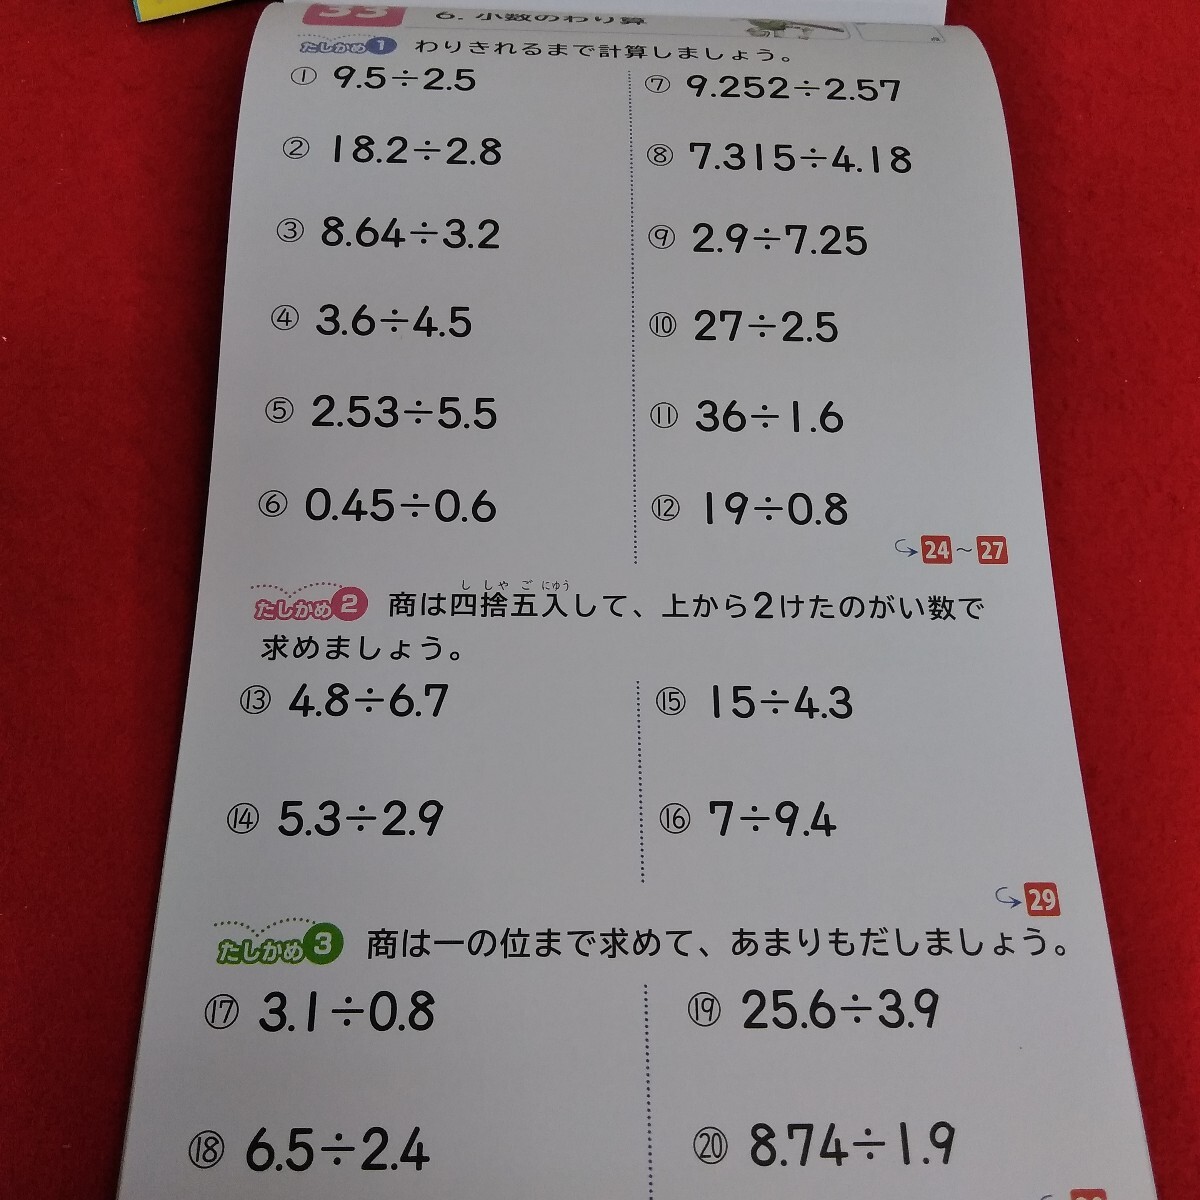 33 6. 小数のわり算
たしかめ1 わりきれるまで計算しましょう。
① 9.5÷2.5
② 18.2÷2.8
③ 8.64÷3.2
④ 3.6÷4.5
⑤ 2.53÷5.5
⑥ 0.45÷0.6
⑦ 9.252÷2.57
⑧ 7.315÷4.18
⑨ 2.9÷7.25
⑩ 27÷2.5
⑪ 36÷1.6
⑫ 19÷0.8
24~27
たしかめ2 商は四捨五入して、上から2けたのがい数で
ししゃごにゅう
求めましょう。
⑬ 4.8÷6.7
⑭ 5.3÷2.9
⑮ 15÷4.3
⑯ 7÷9.4
29
たしかめ3 商は一の位まで求めて、あまりもだしましょう。
⑰ 3.1÷0.8
⑱ 6.5÷2.4
⑲ 25.6÷3.9
⑳ 8.74÷1.9